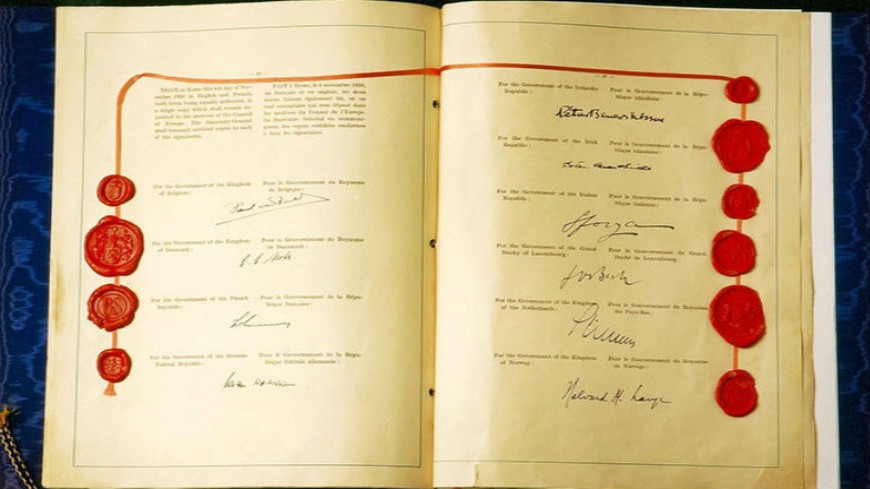 DONE at Rome this 4th day of November 1950 in English and French,
both texts being equally authentic, in
a single copy which shall remain deposited in the archives of the Council
of Europe. The Secretary-General
shall transmit certified copies to each
of the signatories.
FAIT à Rome, le 4 novembre 1950,
en français et en anglais, les deux
textes faisant également foi, en un
seul exemplaire qui sera déposé dans
les archives du Conseil de l'Europe.
Le Secrétaire Général en communiquera des copies certifiées conformes
à tous les signataires.
For the Government of the Kingdom
of Belgium:
Pour le Gouvernement du Royaume
de Belgique:
For the Government of the Kingdom
of Denmark:
Pour le Gouvernement du Royaume
de Danemark:
For the Government of the French
Republic:
Pour le Gouvernement de la République française:
For the Government of the German
Federal Republic:
Pour le Gouvernement de la République fédérale allemande:
For the Government of the Icelandic
Republic:
Pour le Gouvernement de la République islandaise:
For the Government of the Irish
Republic:
Pour le Gouvernement de la République irlandaise:
For the Government of the Italian
Republic:
Pour le Gouvernement de la République italienne:
Sforza
For the Government of the Grand
Duchy of Luxembourg:
Pour le Gouvernement du Grand-
Duché de Luxembourg:
Jos Bech
For the Government of the Kingdom
of the Netherlands:
Pour le Gouvernement du Royaume
des Pays-Bas:
For the Government of the Kingdom
of Norway:
Pour le Gouvernement du Royaume
de Norvège:
Halvard M. Lange